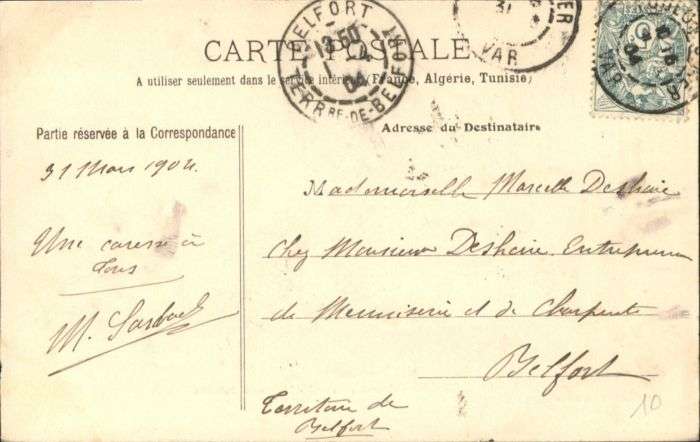 CARTE POSTALE
A utiliser seulement dans le service intérieur (France, Algérie, Tunisie)
BELFORT
13 50
1 4
04
TERR RE-DE-BELFORT
31
VAR
VAR
Partie réservée à la Correspondance
31 Mars 1904.
Une caresse à
tous
M.
Adresse du Destinataire
Mademoiselle Marcelle Deshaie
chez Monsieur Deshaie Entrepreneur
de Menuiserie et de Charpente
Belfort
Territoire de
Belfort
10